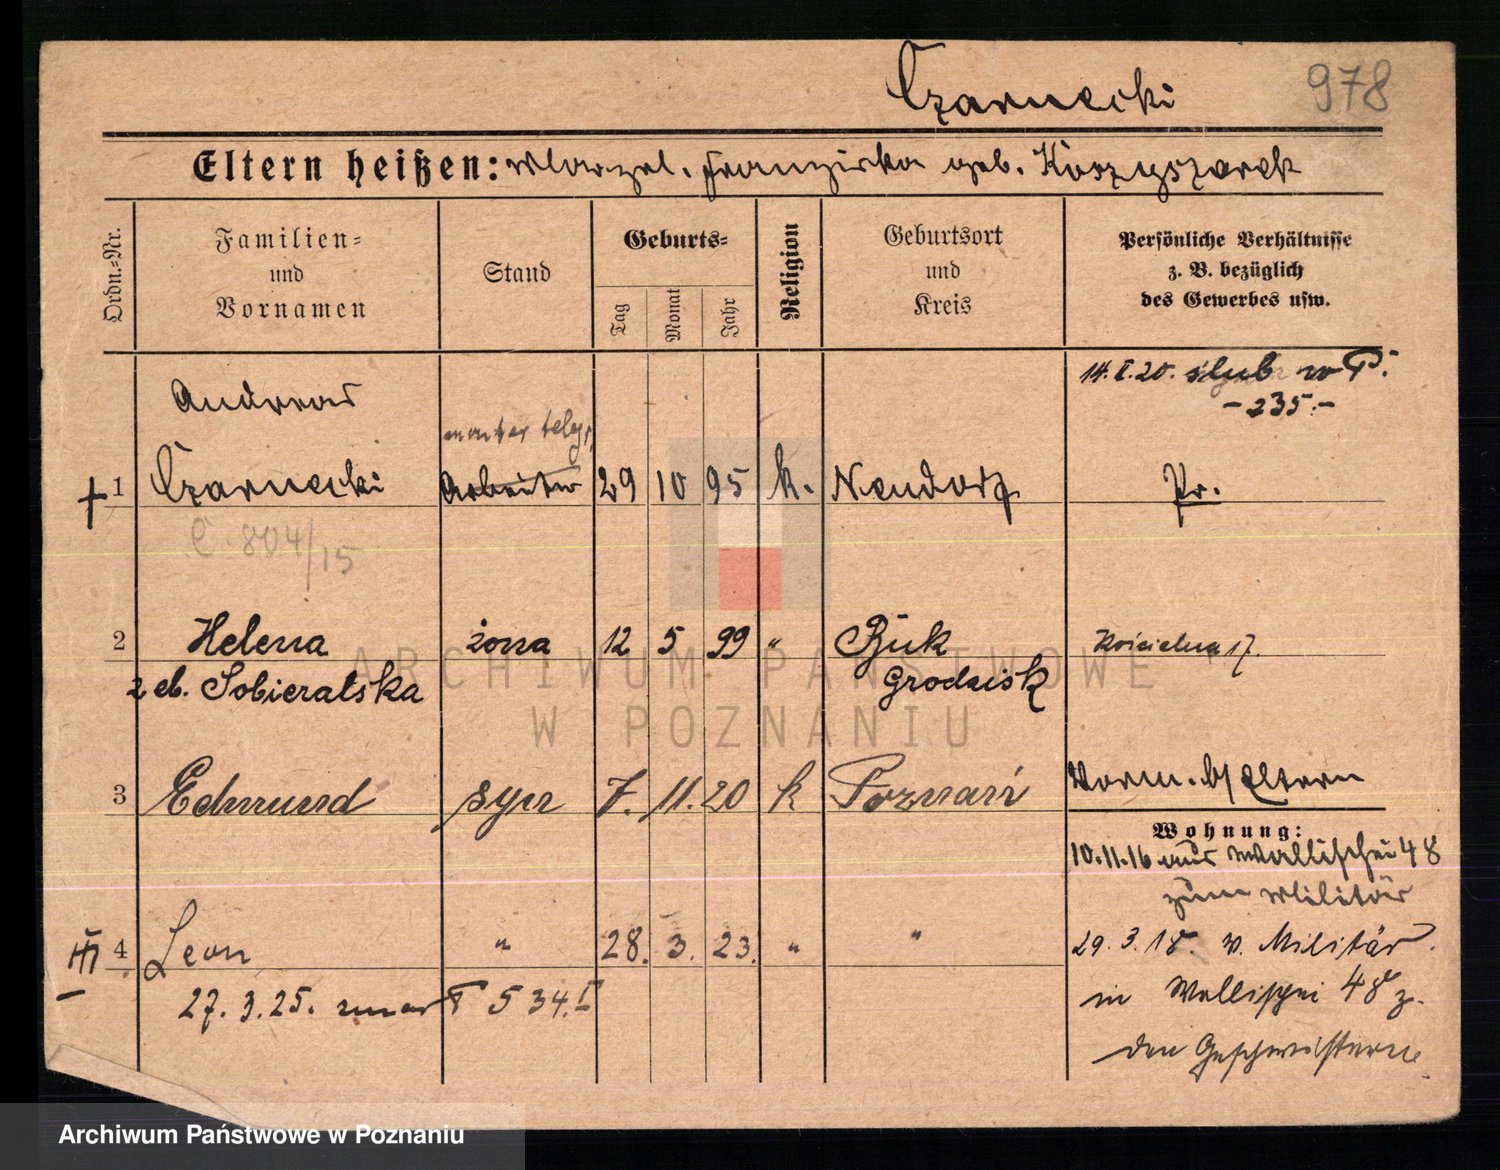 Czarnecki
978
Eltern heißen: Marzel. Franziska geb. Koszyszarek
Ordn.-Nr.
Familien-
und
Vornamen
Stand
Geburts-
Tag
Monat
Jahr
Religion
Geburtsort
und
Kreis
Persönliche Verhältnisse
z. B. bezüglich
des Gewerbes usw.
14.I.20. ślub w P.
-235.-
Andreas
monter telegr.
1 Czarnecki Arbeiter 29 10 95 k. Neudorf Pr.
C. 804/15
2 Helena żona 12 5 99 " Buk Kościelna 17.
z d. Sobieralska Grodzisk
3 Edmund syn 7. 11. 20 k Poznań Vorm. b/ Eltern
Wohnung:
10.11.16 aus Wallischei 48
zum Militär
III 4 Leon " 28. 3. 23. " " 29. 3. 18. v. Militär
in Wallischei 48 z.
27. 3. 25. zmarł 534.I
den Geschwistern
ARCHIWUM PAŃSTWOWE
W POZNANIU
Archiwum Państwowe w Poznaniu